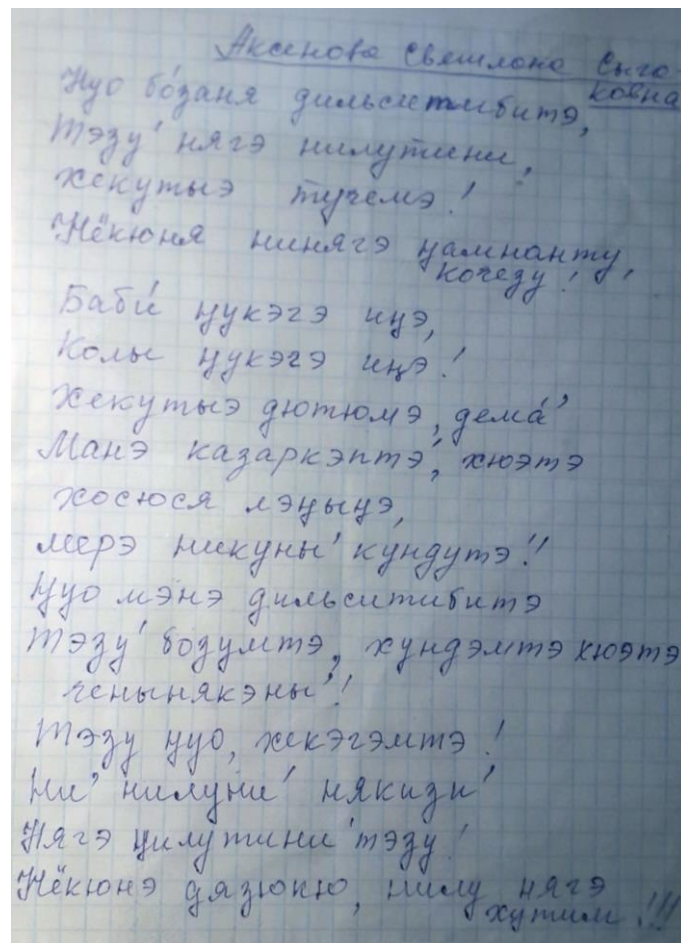 Аксенова Светлана Сыгоковна
Нуо бо́заня дильситибитэ,
Тэзу' нягэ нилутини,
хекутыэ тучемэ!
Нёкюня нинягэ ӈамнанту,
кочезу!
Баби́ ӈукэгэ иӈэ,
Колы ӈукэгэ иӈэ!
Хекутыэ дютюмэ, дема́'
Манэ казаркэптэ', хюэтэ
хосюся лэӈыӈэ,
мерэ никуны' кундутэ!!
Ӈуо мэнэ дильситибитэ
Тэзу' бозумтэ, хундэмтэ хюэтэ
ченынякэны'!
Тэзу ӈуо, хекэгэмтэ!
Ни' нилуни' някизи'
Нягэ ӈилутини' тэзу!
Нёкюнэ дязюкю, нилу нягэ
хутим!!!